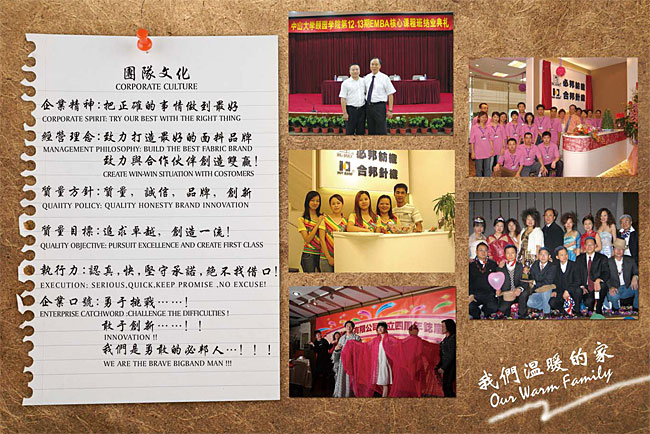 團隊文化
CORPORATE CULTURE
企業精神:把正確的事情做到最好
CORPORATE SPIRIT: TRY OUR BEST WITH THE RIGHT THING
經營理念:致力打造最好的面料品牌
MANAGEMENT PHILOSOPHY: BUILD THE BEST FABRIC BRAND
致力與合作伙伴創造雙贏!
CREATE WIN-WIN SITUATION WITH COSTOMERS
質量方針:質量，誠信，品牌，創新
QUAIITY POLICY: QUALITY HONESTY BRAND INNOVATION
質量目標:追求卓越，創造一流!
QUALITY OBJECTIVE: PURSUIT EXCELLENCE AND CREATE FIRST CLASS
執行力:認真,快,堅守承諾,絕不找借口!
EXECUTION: SERIOUS,QUICK,KEEP PROMISE ,NO EXCUSE!
企業口號:勇于挑戰……!
ENTERPRISE CATCHWORD :CHALLENGE THE DIFFICULTIES !
敢于創新……! !
INNOVATION !!
我們是勇敢的必邦人…! ! !
WE ARE THE BRAVE BIGBAND MAN !!!
中山大学顾园学院第12-13期EMBA核心课程班结业典礼
必邦紡織
合邦針織
必邦紡織
合邦針織
有限公司
周年
我們溫暖的家
Our Warm Family